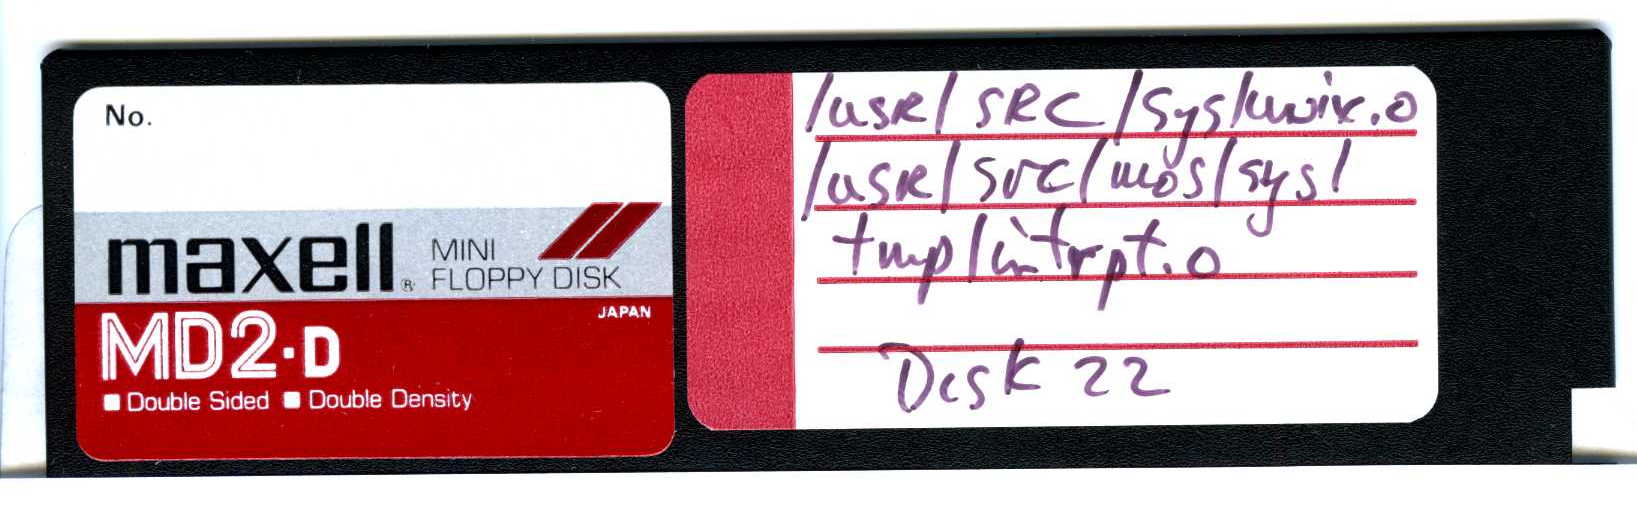 No.
maxell® MINI FLOPPY DISK
JAPAN
MD2-D
Double Sided Double Density
/usR/ SRC /sys/unix.o
/usR/ src/mos/sys/
tmp/intrpt.o
Disk 22